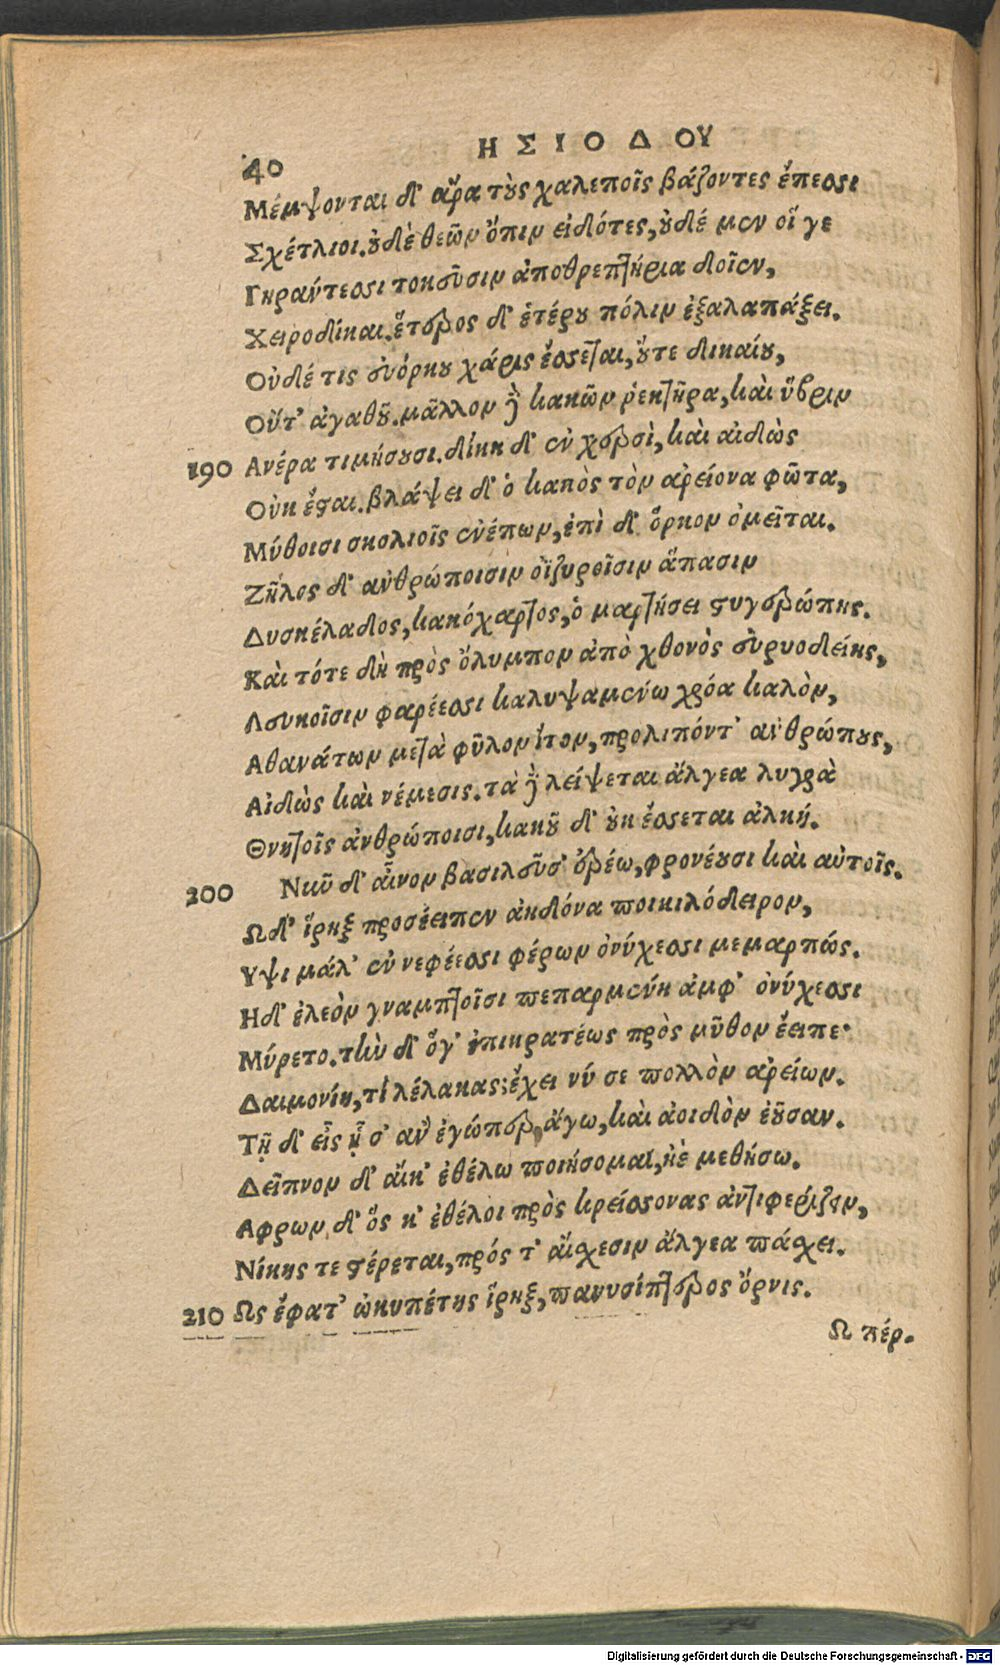 40
ΗΣΙΟΔΟΥ
Μέμψονται δ' ἄρα τοὺς χαλεποῖς βάζοντες ἔπεσσι
Σχέτλιοι. οὐδὲ θεῶν ὄπιν εἰδότες, οὐδέ μὲν οἵ γε
Γηράντεσσι τοκεῦσιν ἀποθρεπτήρια δοῖεν,
Χειροδίκαι. ἕτερος δ' ἑτέρου πόλιν ἐξαλαπάξει.
Οὐδέ τις εὐόρκου χάρις ἔσσεται, οὔτε δικαίου,
Οὔτ' ἀγαθοῦ. μᾶλλον δὲ κακῶν ῥεκτῆρα, καὶ ὕβριν
190 Ανέρα τιμήσουσι. δίκη δ' ἐν χερσὶ, καὶ αἰδὼς
Οὐκ ἔσται. βλάψει δ' ὁ κακὸς τὸν ἀρείονα φῶτα,
Μύθοισι σκολιοῖς ἐνέπων, ἐπὶ δ' ὅρκον ὀμεῖται.
Ζῆλος δ' ἀνθρώποισιν ὀϊζυροῖσιν ἅπασιν
Δυσκέλαδος, κακόχαρτος, ὁ μαρτήσει στυγερώπης.
Καὶ τότε δὴ πρὸς ὄλυμπον ἀπὸ χθονὸς εὐρυοδείης,
Λευκοῖσιν φαρέεσσι καλυψαμένω χρόα καλὸν,
Αθανάτων μετὰ φῦλον ἴτον, προλιπόντ' ἀνθρώπους,
Αἰδὼς καὶ νέμεσις. τὰ δὲ λείψεται ἄλγεα λυγρὰ
Θνητοῖς ἀνθρώποισι, κακοῦ δ' οὐκ ἔσσεται ἀλκή.
200 Νῦν δ' αἶνον βασιλεῦσ' ἐρέω, φρονέουσι καὶ αὐτοῖς.
Ωδ' ἵρηξ προσέειπεν ἀηδόνα ποικιλόδειρον,
Υψι μάλ' ἐν νεφέεσσι φέρων ὀνύχεσσι μεμαρπώς.
Η δ' ἐλεὸν γναμπτοῖσι πεπαρμένη ἀμφ' ὀνύχεσσι
Μύρετο. τὴν δ' ὅγ' ἐπικρατέως πρὸς μῦθον ἔειπε·
Δαιμονίη, τί λέλακας; ἔχει νύ σε πολλὸν ἀρείων.
Τῇ δ' εἶς ᾗ σ' ἂν ἐγώπερ ἄγω, καὶ ἀοιδὸν ἐοῦσαν.
Δεῖπνον δ' αἴκ' ἐθέλω ποιήσομαι, ἠὲ μεθήσω.
Αφρων δ' ὅς κ' ἐθέλοι πρὸς κρείσσονας ἀντιφερίζειν,
Νίκης τε στέρεται, πρός τ' αἴσχεσιν ἄλγεα πάσχει.
210 Ως ἔφατ' ὠκυπέτης ἵρηξ, τανυσίπτερος ὄρνις.
Ω πέρ.
Digitalisierung gefördert durch die Deutsche Forschungsgemeinschaft - DFG